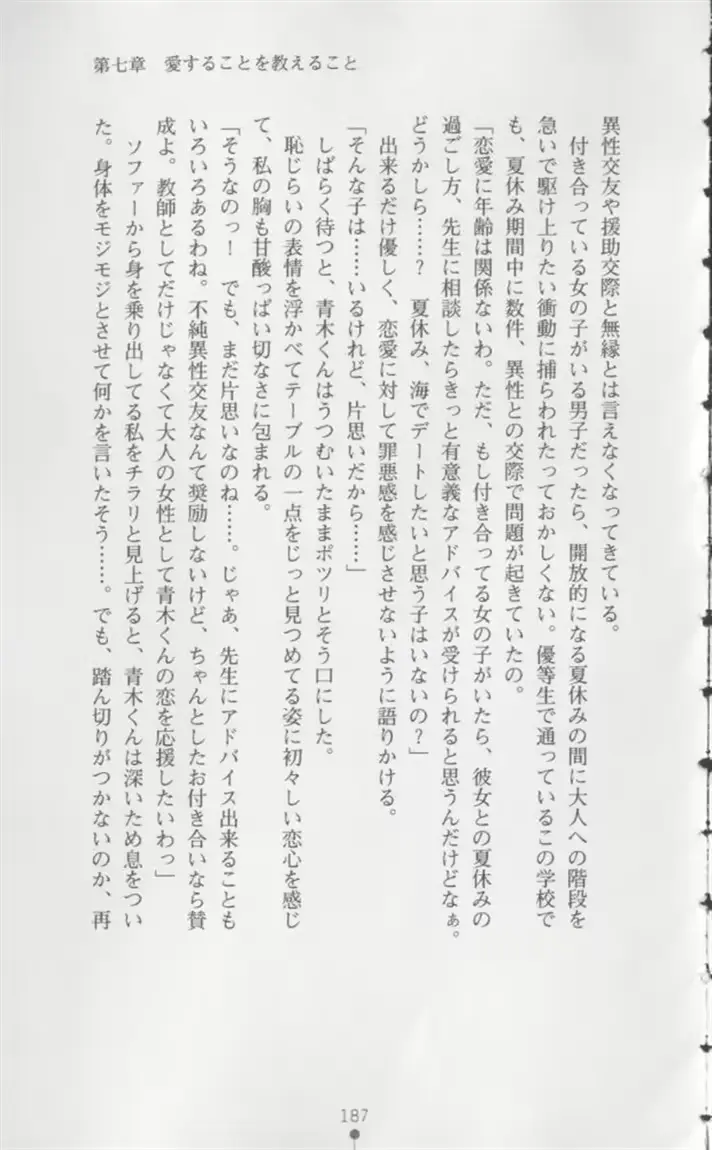 第七章　愛することを教えること
異性交友や援助交際と無縁とは言えなくなってきている。
付き合っている女の子がいる男子だったら、開放的になる夏休みの間に大人への階段を
急いで駆け上りたい衝動に捕らわれたっておかしくない。優等生で通っているこの学校で
も、夏休み期間中に数件、異性との交際で問題が起きていたの。
「恋愛に年齢は関係ないわ。ただ、もし付き合ってる女の子がいたら、彼女との夏休みの
過ごし方、先生に相談したらきっと有意義なアドバイスが受けられると思うんだけどなぁ。
どうかしら……？　夏休み、海でデートしたいと思う子はいないの？」
出来るだけ優しく、恋愛に対して罪悪感を感じさせないように語りかける。
「そんな子は……いるけれど、片思いだから……」
しばらく待つと、青木くんはうつむいたままポツリとそう口にした。
恥じらいの表情を浮かべてテーブルの一点をじっと見つめてる姿に初々しい恋心を感じ
て、私の胸も甘酸っぱい切なさに包まれる。
「そうなのっ！　でも、まだ片思いなのね……。じゃあ、先生にアドバイス出来ることも
いろいろあるわね。不純異性交友なんて奨励しないけど、ちゃんとしたお付き合いなら賛
成よ。教師としてだけじゃなくて大人の女性として青木くんの恋を応援したいわっ」
ソファーから身を乗り出してる私をチラリと見上げると、青木くんは深いため息をつい
た。身体をモジモジとさせて何かを言いたそう……。でも、踏ん切りがつかないのか、再
187